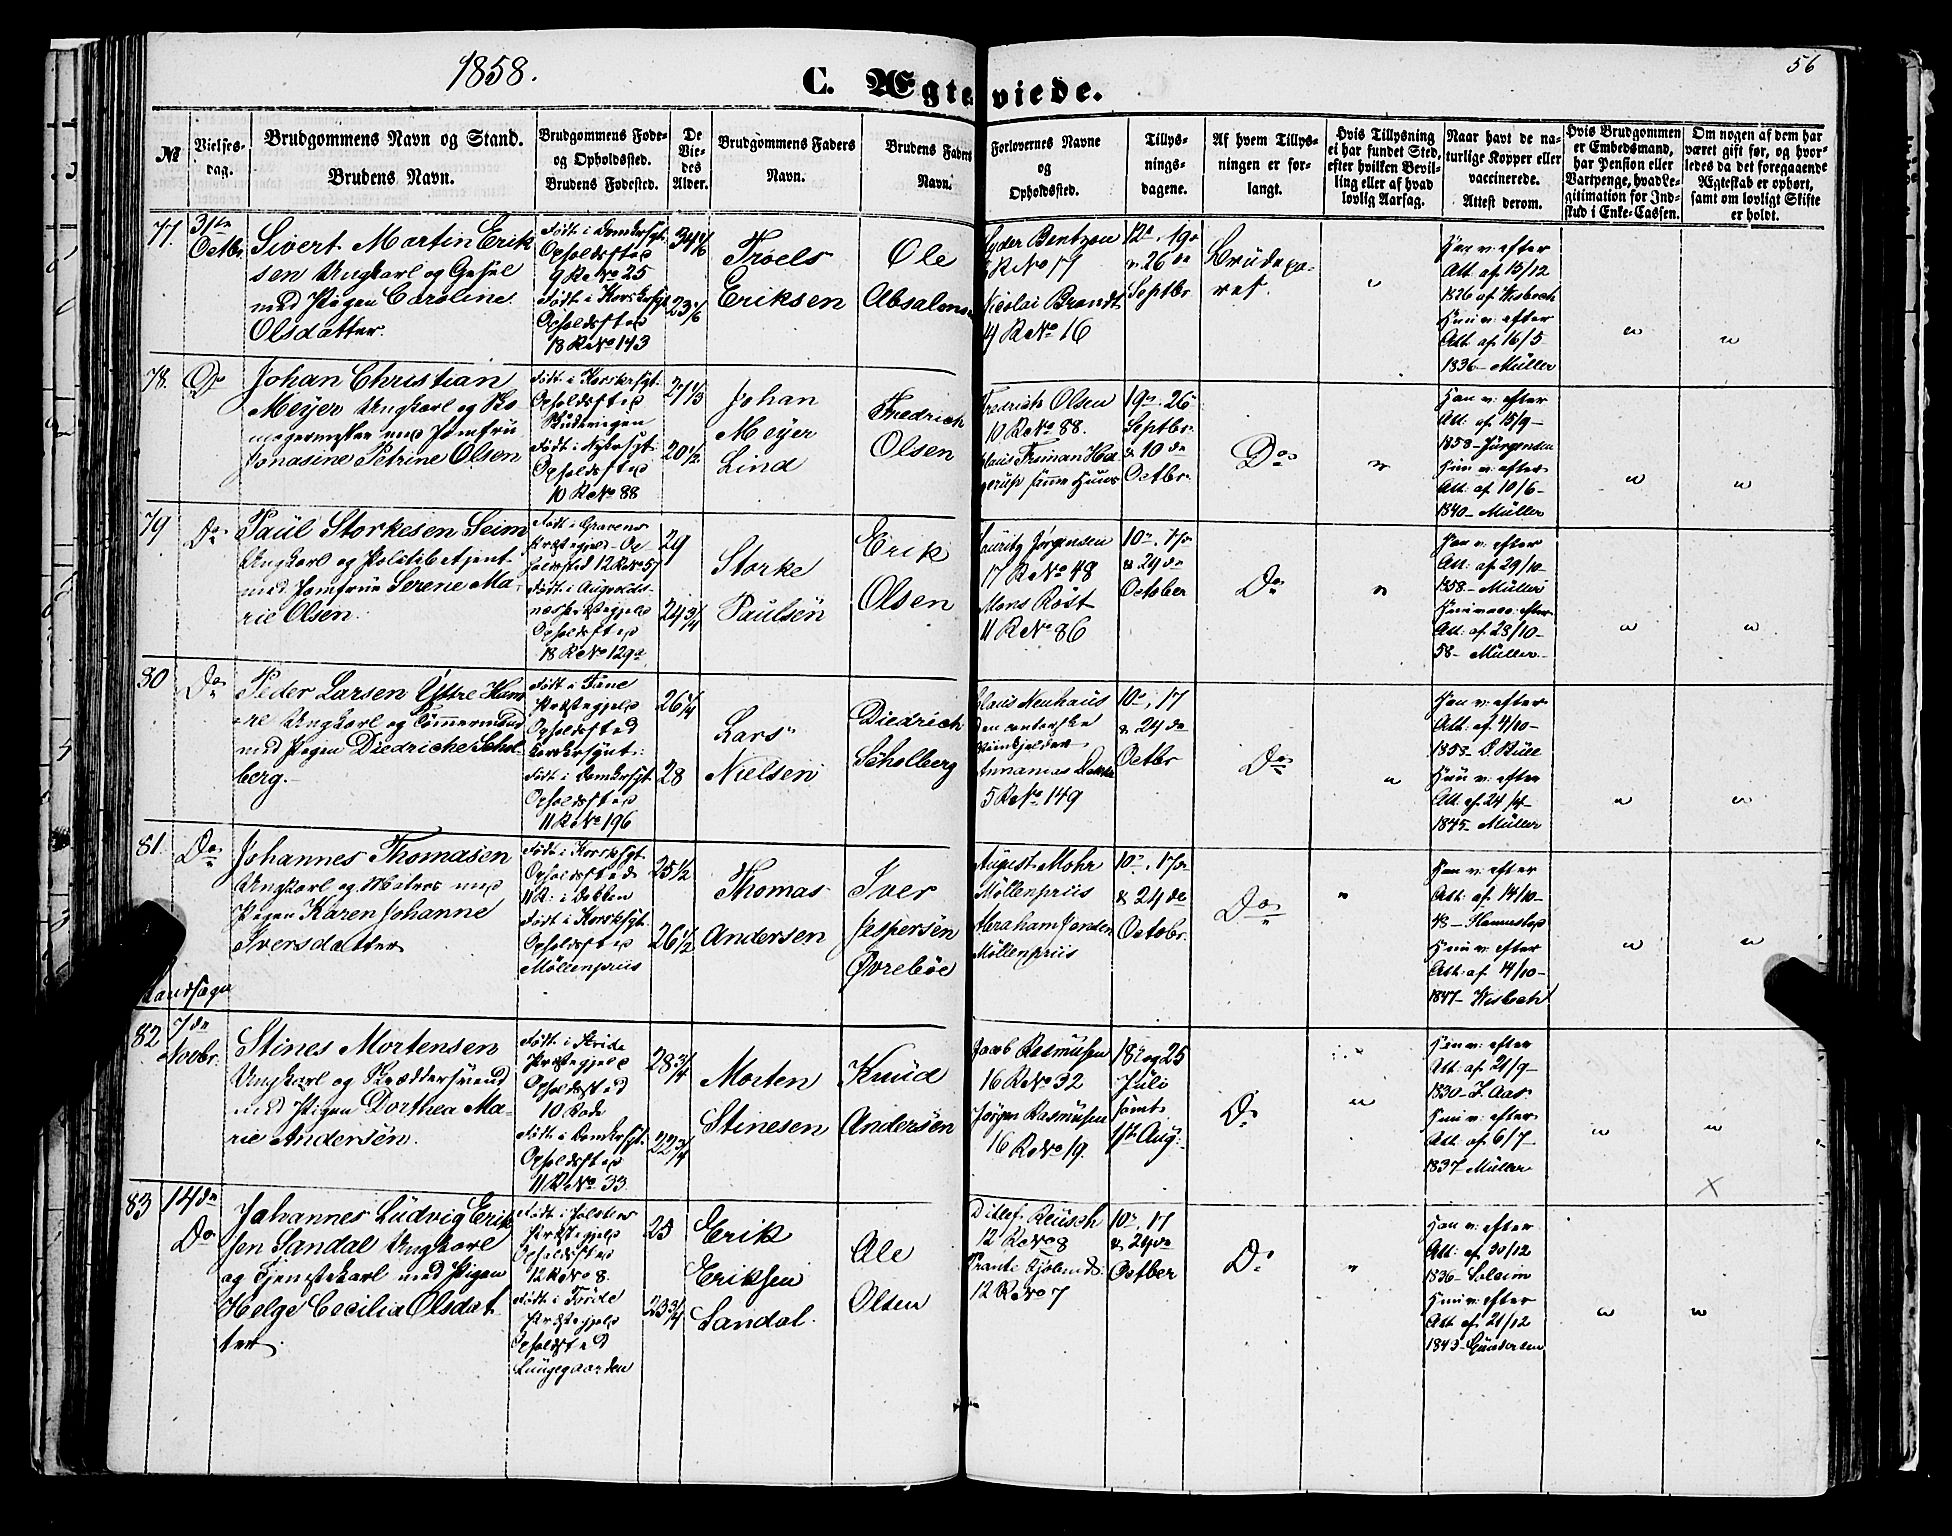 1858.
56
C. Ægteviede.
№
Vielses-
dag.
Brudgommens Navn og Stand.
Brudens Navn.
Brudgommens Føde-
og Opholdssted.
Brudens Fødested.
De
Vie-
des
Alder.
Brudgommens Faders
Navn.
Brudens Faders
Navn.
Forlovernes Navne
og
Opholdssted.
Tillys-
nings-
dagene.
Af hvem Tillys-
ningen er for-
langt.
Hvis Tillysning
ei har fundet Sted,
efter hvilken Bevil-
ling eller af hvad
lovlig Aarsag.
Naar havt de na-
turlige Kopper eller
vaccinerede.
Attest derom.
Hvis Brudgommen
er Embedsmand,
har Pension eller
Vartpenge, hvad Le-
gitimation for Ind-
skud i Enke-Cassen.
Om nogen af dem har
været gift før, og hvor-
ledes da det foregaaende
Ægteskab er ophørt,
samt om lovligt Skifte
er holdt.
77.
31te
Octbr
Sivert Martin Erik
sen Ungkarl og
med Pigen Caroline
Olsdatter.
Født i Domkrsgt.
Opholdsted
9 R No 25
Født i Korskrsgt
Opholdsted
18 R No 143
34 1/6
23 1/6
Troels
Eriksen
Ole
Absalons
Lyder Bentzen
R No 17
Nicolai Brandt
4 R No 16
12te, 19de
& 26de
Septbr
Brudepa-
ret.
"
Han v. efter
Att. af 15/12
1826 af Wisbech
Hun v. efter
Att. af 16/5
1836 Müller
"
"
78.
Do
Johan Christian
Meyer Ungkarl og Sko
magermester med Jomfru
Jonasine Petrine Olsen
Født i Korskrsgt.
Opholdsted
Født i Nykrsgt.
Opholdsted
10 R No 88
27 1/3
20 1/2
Johan
Meyer
Lind
Fredrich
Olsen
Fredrich Olsen
10 R No 88.
19de, 26
Septbr
& 10de
Octbr
Do
"
Han v. efter
Att: af 15/9
1858 Jürgensen
Hun v. efter
Att: af 10/6
1840 Müller
"
"
79
Do
Paul Storkesen Seim
Ungkarl og Politibetjent
med Jomfrue Serene Ma-
rie Olsen.
Født i Gravens
Præstegjeld Op-
holdsted 12 R No 57
Født i Augvolds-
næs Præstegjeld
Opholdsted
18 R No 129a
29
24 3/4
Storke
Paulsen
Erik
Olsen
Lauritz Jørgensen
17 R No 48
Mons Røst
11 R No 86
10de, 17de
& 24de
October
Do
"
Han v. efter
Att: af 29/10
1858 Müller
Hun vacc. efter
Att: af 28/10
58 Müller
"
"
80
Do
Peder Larsen Ystre Ham
re Ungkarl og Tømmermand
med Pigen Diedriche Schol-
berg.
Født i Fane
Præstegjeld
Opholdsted
Korskrsgt.
Født i Domkrsgt.
Opholdsted
11 R No 196
26 1/4
28
Lars
Nielsen
Diedrich
Scholberg
Claus Neuhaus
5 R No 149
10de, 17
& 24de
Octbr
Do
"
Han v. efter
Att: af 4/10
1858
Hun v. efter
Att. af 24/4
1845 Müller
"
"
81.
Do
Johannes Thomasen
Ungkarl og Matros med
Pigen Karen Johanne
Iversdatter
Født i Korskrsgt.
Opholdsted
11 R: i Dokken
Født i Korskrsgt.
Opholdsted
Möllenpriis
25 1/2
26 1/2
Thomas
Andersen
Iver
Jespersen
Øvrebøe
August Mohr
Möllenpriis
Abraham Jansen
Möllenpriis
10de, 17de
& 24de
Octobr.
Do
"
Han v. efter
Att: af 14/10
48
Hun v. efter
Att: af 14/10
1847 Wisbech
"
"
Landsogn
82
7de
Novbr.
Stines Mortensen
Ungkarl og Skræddersvend
med Pigen Dorthea Ma-
rie Andersen.
Præstegjeld
Opholdsted
10 Rode
Født i Domkrsgt.
Opholdsted
11 R No 33
28 3/4
22 3/4
Morten
Stinesen
Knud
Andersen
Jacob Rasmussen
16 R No 32
Jørgen Rasmussen
16 R No 19.
18de og 25
Juli
samt
1ste Aug:
Do
"
Han v. efter
Att: af 21/9
1830 J. Aas
Hun v. efter
Att. af 6/7
1837 Müller
"
"
X
83
14de
Do
Johannes Ludvig Erik
sen Sandal Ungkarl
og Tjenestekarl med Pigen
Helge Cecilia Olsdat
ter.
Født i Jølsters
Præstegjeld
Opholdsted
12 R No 8.
Født i Førde
Præstegjeld
Opholdsted
Lungegaarden
25
23 3/4
Erik
Eriksen
Sandal.
Ole
Olsen
Ditlef Reusch
12 R No 8
12 R No 7
10de, 17
& 24de
October
Do
"
Han v. efter
Att: af 30/12
1836
Hun v. efter
Att af 21/12
1843 Gundersen
"
"